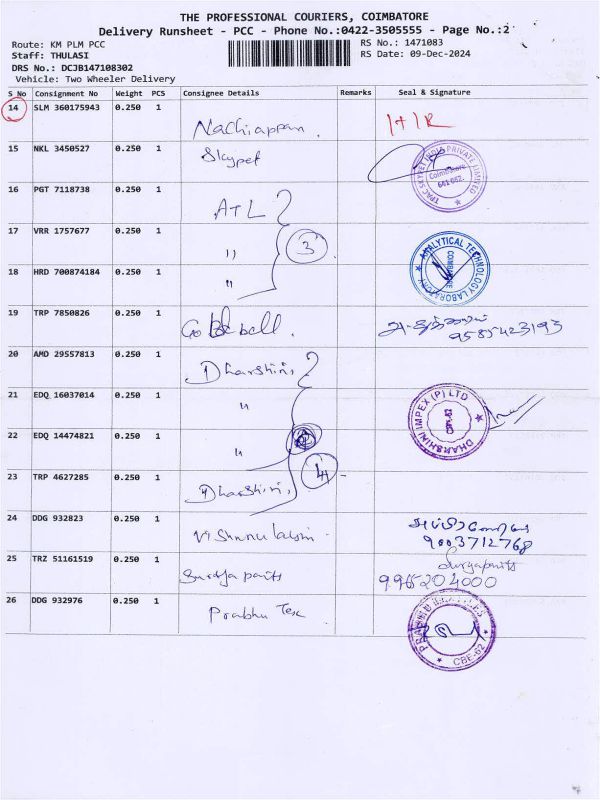 THE PROFESSIONAL COURIERS, COIMBATORE
Delivery Runsheet - PCC - Phone No.:0422-3505555 - Page No.:2
Route: KM PLM PCC
RS No.: 1471083
Staff: THULASI
RS Date: 09-Dec-2024
DRS No.: DCJB147108302
Vehicle: Two Wheeler Delivery
S No Consignment No Weight PCS Consignee Details Remarks Seal & Signature
14 SLM 360175943 0.250 1 Nachiappan.
15 NKL 3450527 0.250 1 Skypet
TPAC SKYPET INDIA PRIVATE LIMITED Coimbatore 641 062.
16 PGT 7118738 0.250 1 ATL
17 VRR 1757677 0.250 1 " 3
ANALYTICAL TECHNOLOGY LABORATORY COIMBATORE
18 HRD 700874184 0.250 1 "
19 TRP 7850826 0.250 1
9585423193
20 AMD 29557813 0.250 1 Dharshini,
21 EDQ 16037014 0.250 1 "
DHARSHINI IMPEX (P) LTD
22 EDQ 14474821 0.250 1 "
23 TRP 4627285 0.250 1 Dharshini, 4
24 DDG 932823 0.250 1
9003712768
25 TRZ 51161519 0.250 1 Surya paits
9965204000
26 DDG 932976 0.250 1 Prabhu Tex
CBE-627